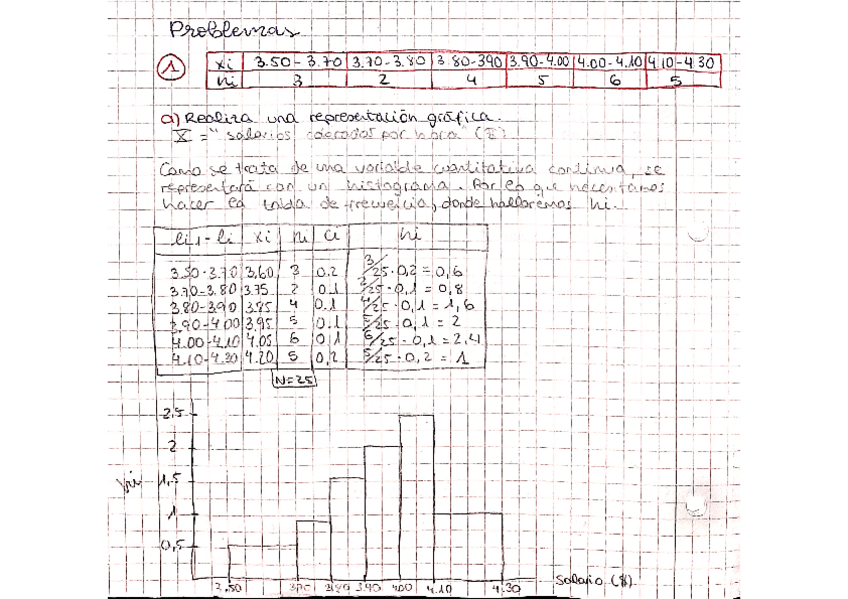 Problemas
1 xi 3.50-3.70 3.70-3.80 3.80-390 3.90-4.00 4.00-4.10 4.10-4.30
ni 3 2 4 5 6 5
a) Realiza una representación gráfica.
X = "salarios cobrados por hora" ($).
Como se trata de una variable cuantitativa continua, se
representará con un histograma. Por lo que necesitamos
hacer la tabla de frecuencia, donde hallaremos hi.
li-1 - li xi ni ai hi
3.50-3.70 3.60 3 0.2 3/25·0.2 = 0,6
3.70-3.80 3.75 2 0.1 2/25·0,1 = 0,8
3.80-3.90 3.85 4 0.1 4/25·0,1 = 1,6
3.90-4.00 3.95 5 0.1 5/25·0,1 = 2
4.00-4.10 4.05 6 0,1 6/25·0.1 = 2,4
4.10-4.30 4.20 5 0,2 5/25·0.2 = 1
N=25
2,5
2
hi 1,5
1
0,5
3.50 3.70 3.80 3.90 4.00 4.10 4.30 salario ($)